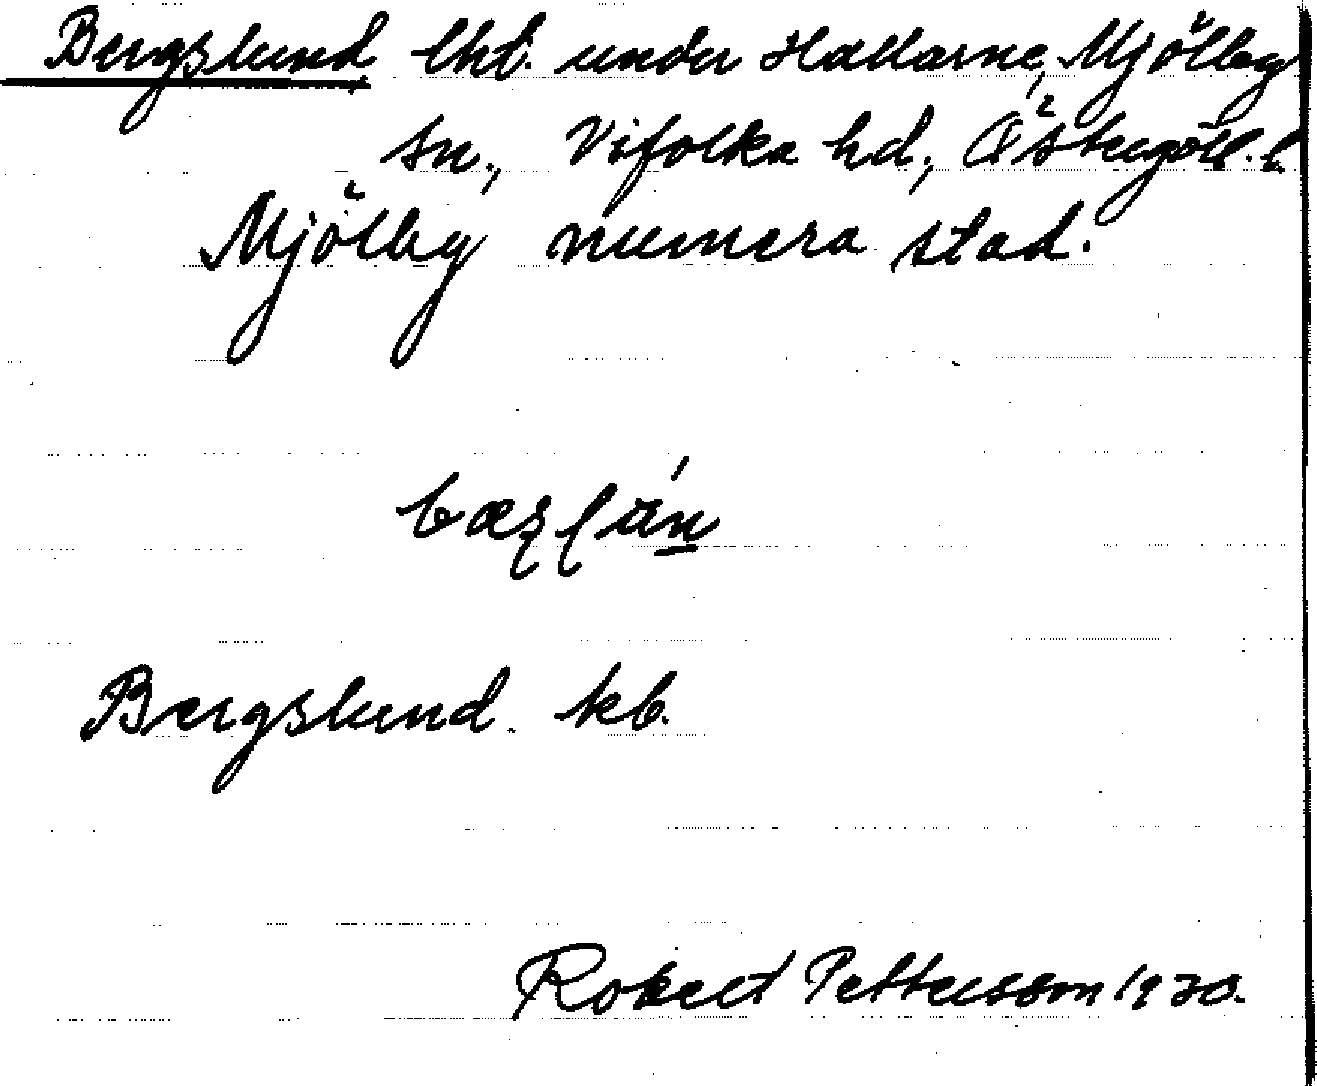 Bergslund, lht. under Hallarne, Mjölby
sn., Vifolka hd., Östergötl. l.
Mjölby numera stad.
Bergslund. kb.
Robert Pettersson 1930.